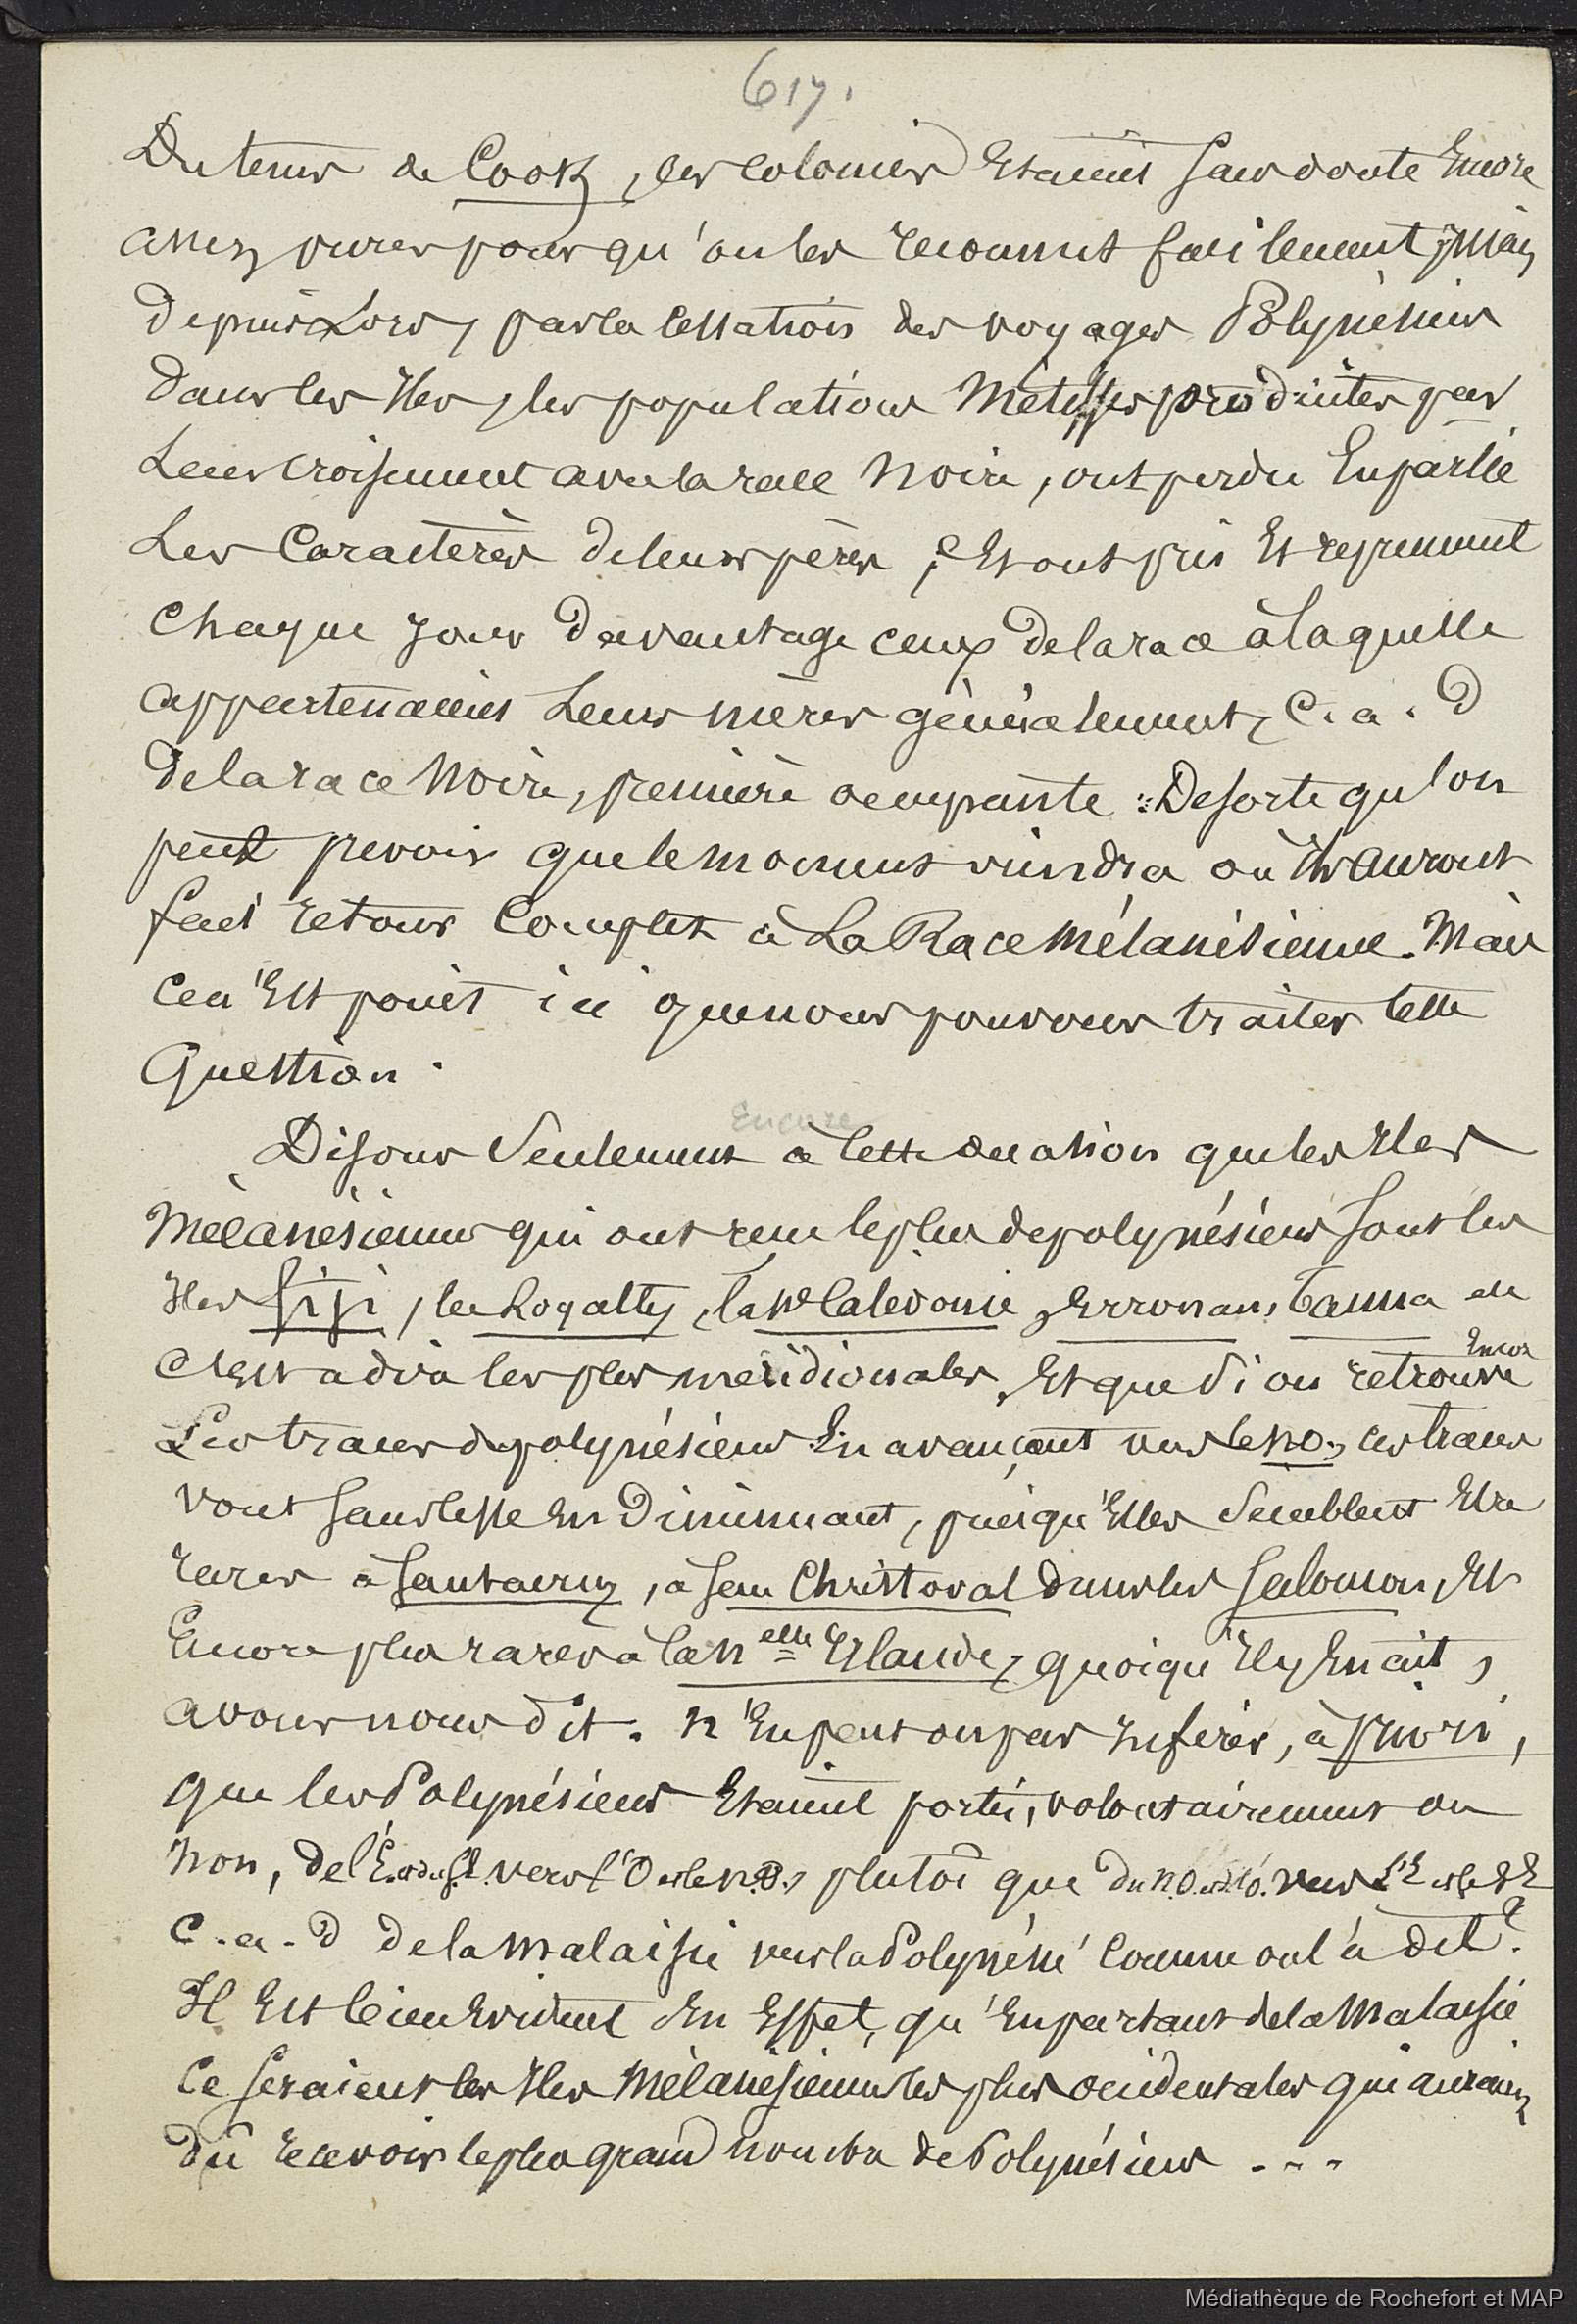 617.
Du temps de Cook, les colonies Etaient sans doute Encore
assez pures pour qu'on les reconnut facilement ; mais
depuis Lors, par la cessation des voyages Polynésiens
dans les Iles, les populations Métisses produites par
Leur croisement avec la race Noire, ont perdu En partie
Les Caractères de leurs pères, Et ont pris Et reprennent
Chaque jour davantage ceux de la race à laquelle
appartenaient Leurs mères généralement, C. a. d
de la race Noire, première occupante. De sorte qu'on
peut prevoir que le moment viendra où ils auront
fait retour Complet à La Race Mélanésienne. Mais
ce n'Est point ici que nous pouvons traiter cette
Question.
Encore
Disons Seulement à cette occasion que les Iles
Mélanésiennes qui ont reçu le plus de polynésiens sont les
Iles Fiji, les Loyalty, la Nlle Calédonie, Erronan, Tanna etc
C'est a dire les plus méridionales, Et que Si on retrouve Encor
Les traces de polynésiens En avançant vers le no., ces traces
vont sans cesse En Diminuant, puisqu'Elles Semblent Etre
rares à Santa cruz, à San Christoval dans les Salomon, Et
Encore plus rares à la nelle Irlande, quoiqu'Il y En ait,
avons nous dit. N'En peut on pas Inférer, à priori,
que les Polynésiens Etaient portés, volontairement ou
Non, de l'E. et du SE. vers l'O et le N.O., plutôt que du N.O. et de l'O. vers L'E et le SE
C. a. d de la Malaisie vers la Polynésie Comme on l'a dit ?
Il Est bien Evident En Effet, qu'En partant de la Malaisie
Ce seraient les Iles Mélanésiennes les plus occidentales qui auraient
dû recevoir le plus grand nombre de Polynésiens ...
Médiathèque de Rochefort et MAP